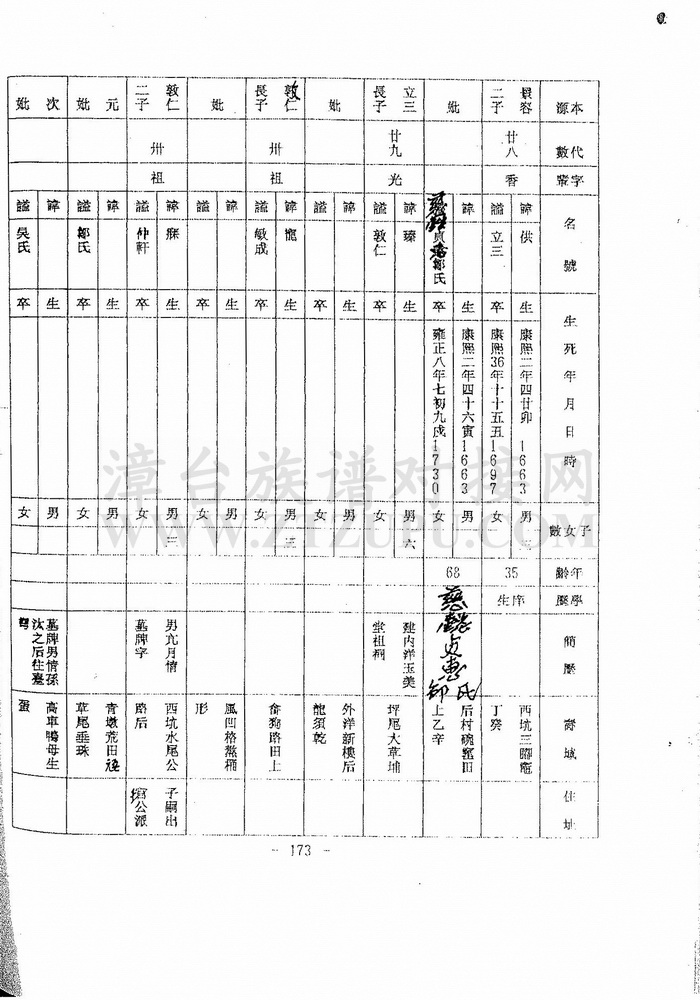 本源
代數
字輩
名號
生死年月日時
子女數
年齡
學歷
簡歷
壽域
住址
二子
廿八
香
諱 供
諡 立三
生 康熙二年四廿卯 1663
卒 康熙36年十十五丑 1697
男 二
女
35
庠生
西坑三腳竈
丁癸
妣
鄒氏
生 康熙二年四十六寅 1663
卒 雍正八年七初九戌 1730
男
女
68
慈懿
貞惠
鄒氏
后村碗窰田
上乙辛
立三
長子
廿九
光
諱 臻
諡 敦仁
生
卒
男 六
女
建内洋玉美
堂祖祠
坪尾大草埔
妣
諱
諡
生
卒
男
女
外洋新樓后
龍須乾
敦仁
長子
卅
祖
諱 寵
諡 敏成
生
卒
男 三
女
畬狗路田上
妣
諱
諡
生
卒
男
女
風凹格熬桶
形
敦仁
二子
卅
祖
諱 寐
諡 仲軒
生
卒
男 三
女
男亢月情
墓牌字
西坑水尾公
路后
子嗣出
公派
元妣
諱
諡 鄒氏
生
卒
男
女
青墩荒田
草尾垂珠
次妣
諱
諡 吳氏
生
卒
男
女
墓牌男情孫
汰之后住臺
灣
高車鴨母生
蛋
- 173 -
漳台族谱对接网
WWW.ZTZUPU.COM